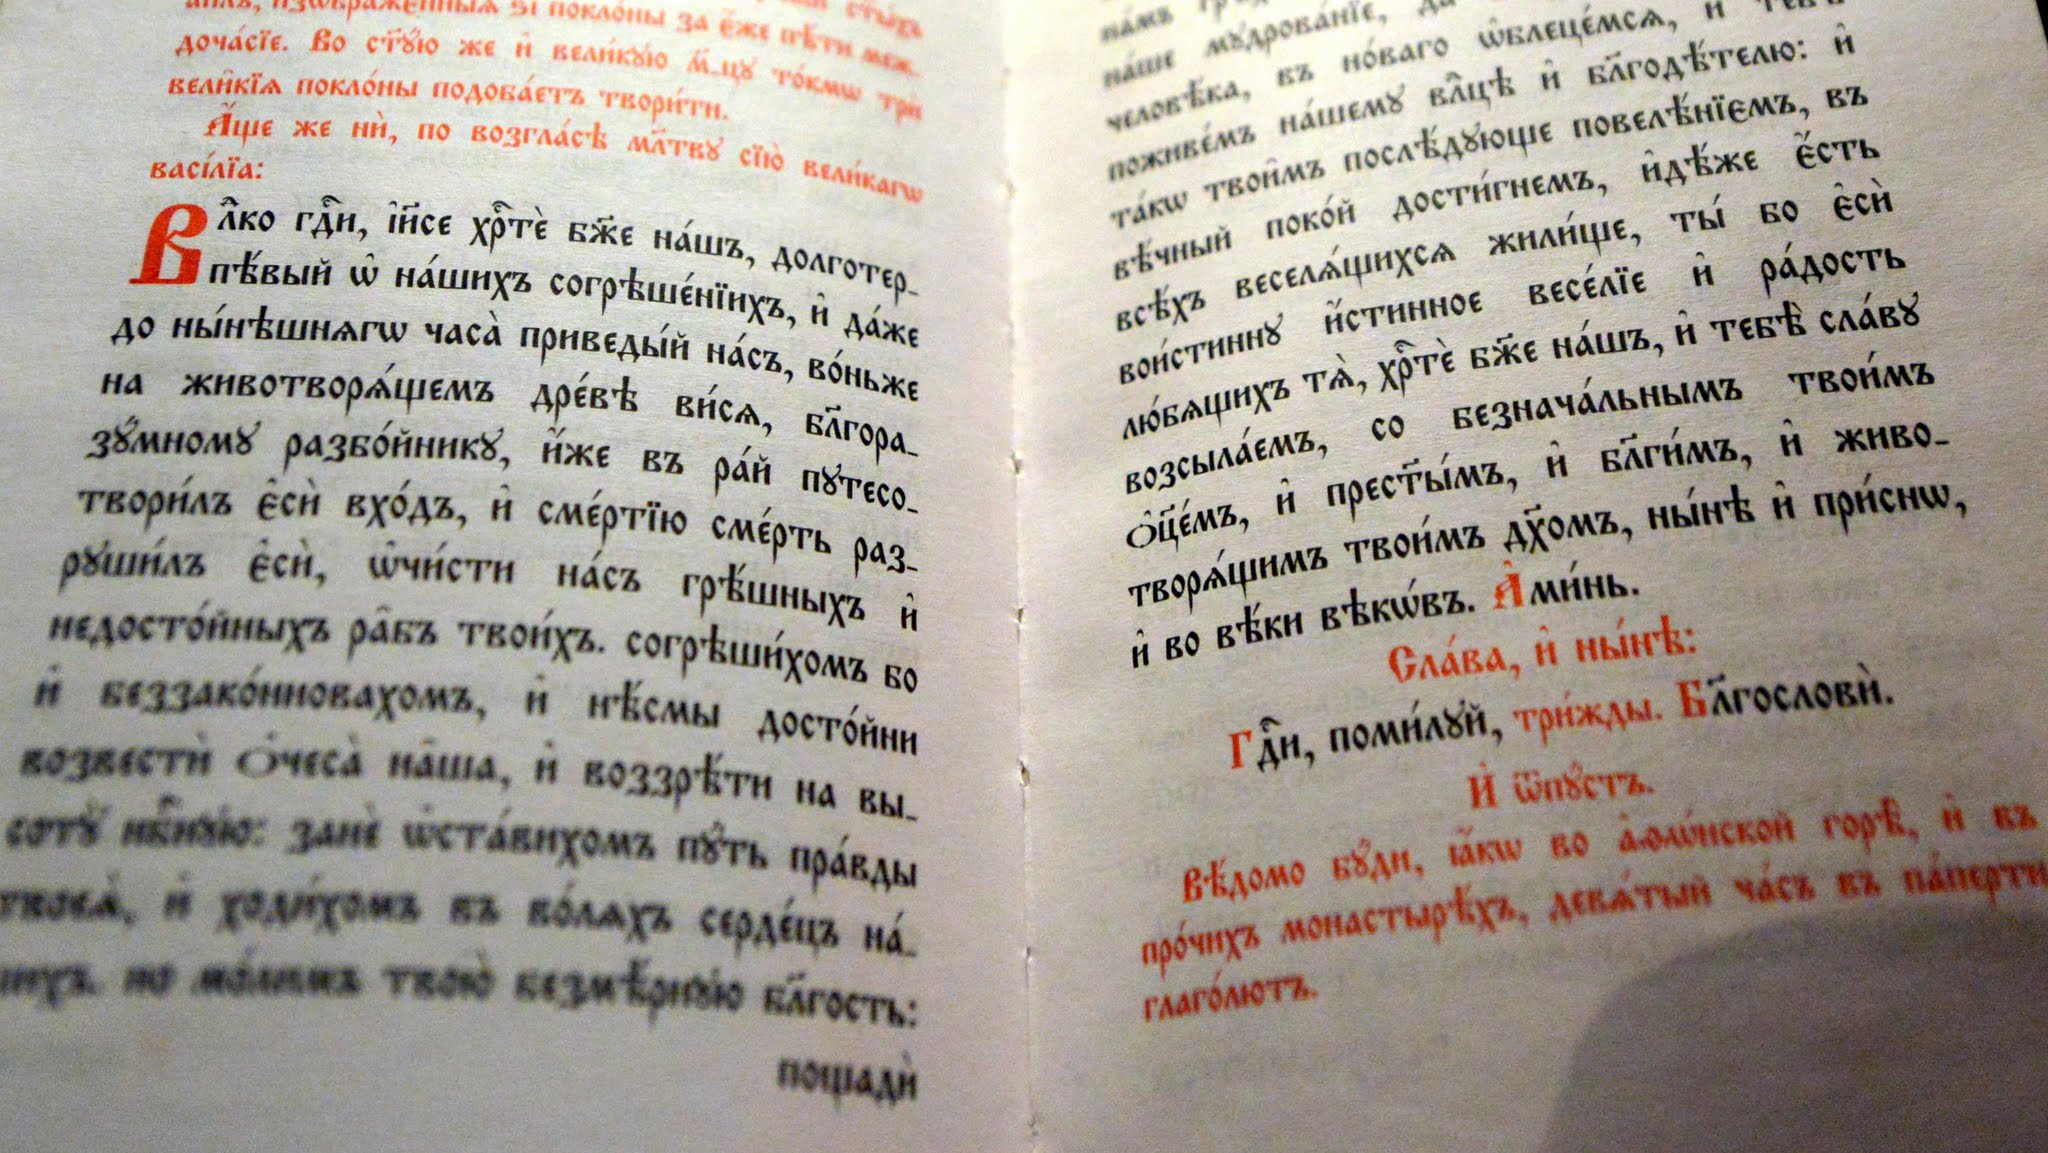 поклѡ́ны за є҆́же пѣ́ти меж-
доча́сїе. Во ст҃ꙋ́ю же и҆ вели́кꙋю м҃-цꙋ то́кмѡ три
вели̑кїѧ покло́ны подоба́етъ твори́ти.
А҆́ще же нѝ, по возгла́сѣ мл҃твꙋ сїю̀ вели́кагѡ
васі́лїа:
Влⷣко гдⷭ҇и, і҆и҃се хрⷭ҇тѐ бж҃е на́шъ, долготер-
пѣ́вый ѡ҆ на́шихъ согрѣше́нїихъ, и҆ да́же
до ны́нѣшнѧгѡ часа̀ приведы́й на́съ, во́ньже
на животворѧ́щемъ дре́вѣ ви́сѧ, бл҃гора-
зꙋ́мномꙋ разбо́йникꙋ, и҆́же въ ра́й пꙋтесо-
твори́лъ є҆сѝ вхо́дъ, и҆ сме́ртїю сме́рть раз-
рꙋши́лъ є҆сѝ, ѡ҆чи́сти на́съ грѣ́шныхъ и҆
недосто́йныхъ ра̑бъ твои́хъ. согрѣши́хомъ бо
и҆ беззако́нновахомъ, и҆ нѣ́смы досто́йни
возвестѝ ѻ҆чеса̀ на̑ша, и҆ воззрѣ́ти на вы-
сотꙋ̀ нбⷭ҇нꙋю: занѐ ѡ҆ста́вихомъ пꙋ́ть пра́вды
твоеѧ̀, и҆ ходи́хомъ въ во́лѧхъ серде́цъ на́-
шихъ. но мо́лимъ твою̀ безмѣ́рнꙋю бл҃гость:
пощадѝ
на́ше мꙋдрова́нїе, да
человѣ́ка, въ но́ваго ѡ҆блеце́мсѧ, и҆ тебѣ̀
поживе́мъ на́шемꙋ влⷣцѣ и҆ бл҃годѣ́телю: и҆
та́кѡ твои̑мъ послѣ́дꙋюще повелѣ́нїємъ, въ
вѣ́чный поко́й дости́гнемъ, и҆дѣ́же є҆́сть
всѣ́хъ веселѧ́щихсѧ жили́ще, ты́ бо є҆сѝ
вои́стиннꙋ и҆́стинное весе́лїе и҆ ра́дость
лю́бѧщихъ тѧ̀, хрⷭ҇тѐ бж҃е на́шъ, и҆ тебѣ̀ сла́вꙋ
возсыла́емъ, со безнача́льнымъ твои́мъ
ѻ҆ц҃е́мъ, и҆ прест҃ы́мъ, и҆ бл҃ги́мъ, и҆ живо-
творѧ́щимъ твои́мъ дх҃омъ, ны́нѣ и҆ при́снѡ,
и҆ во вѣ́ки вѣкѡ́въ. А҆ми́нь.
Сла́ва, и҆ ны́нѣ:
Гдⷭ҇и, поми́лꙋй, три́жды. Бл҃гословѝ.
И҆ ѿпꙋ́стъ.
Вѣ́домо бꙋ́ди, ꙗ҆́кѡ во а҆ѳѡ́нской горѣ̀, и҆ въ
про́чихъ монастырѣ́хъ, девѧ́тый ча́съ въ па́перти
глаго́лютъ.